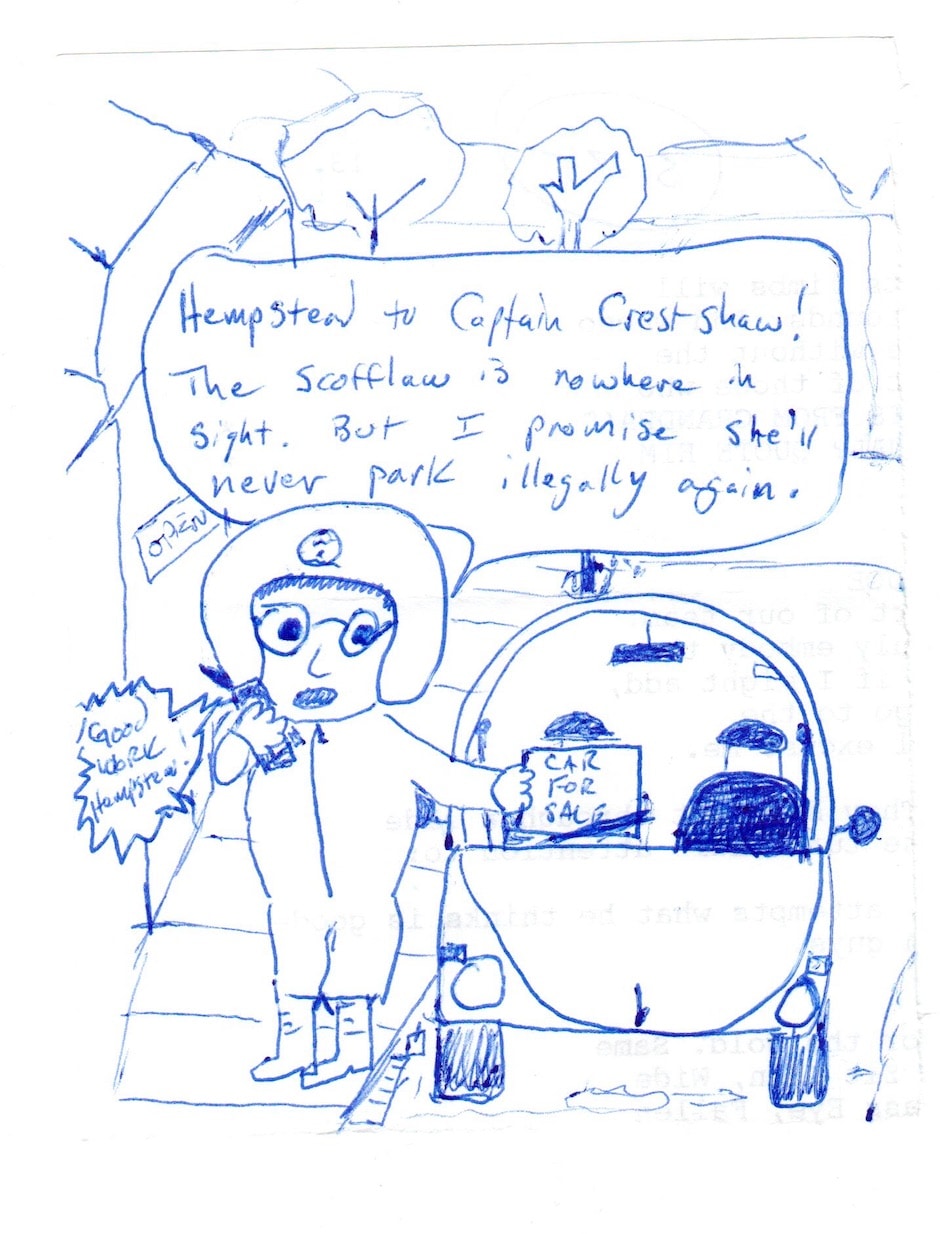 Hempstead to Captain Crestshaw!
The Scofflaw is nowhere in
sight. But I promise she'll
never park illegally again.
OPEN
GOOD
WORK
Hempstead!
CAR
FOR
SALE